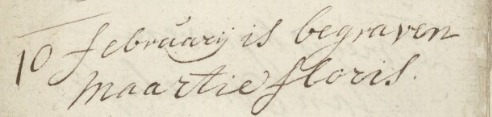 10 februarij is begraven
maartie floris.